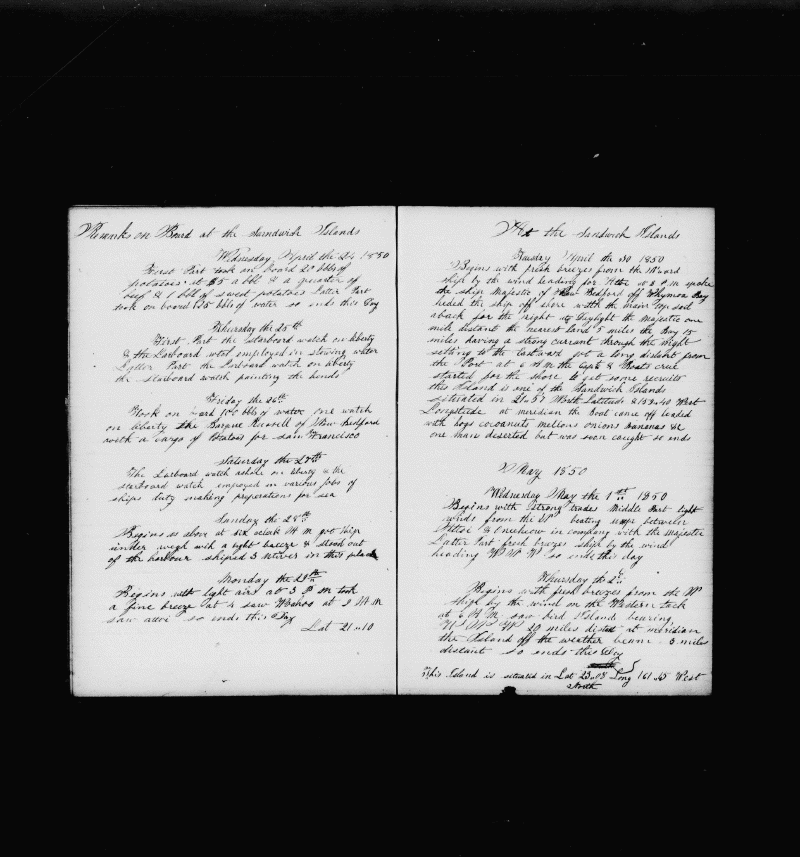 Remarks on Board at the Sandwich Islands
Wednesday April the 24 1850
First Part took on board 20 bbls of
potatoes at $5 a bbl & a quarter of
beef & 1 bbl of sweet potatoes Latter Part
took on board 125 bbls of water so ends this Day
Thursday the 25th
First Part the Starboard watch on liberty
& the Larboard employed in stowing water
Latter Part the Larboard watch on liberty
the starboard watch painting the bends
Friday the 26th
Took on board 100 bbls of water one watch
on liberty the Barque Russell of New Bedford
with a cargo of Potatoes for San Francisco
Saturday the 27th
The Larboard watch ashore on liberty & the
starboard watch employed in various jobs of
ships duty making preperations for sea
Sunday the 28th
Begins as above at six oclock A M got ship
under weigh with a light breeze & stood out
of the harbour shiped 3 natives in this place
Monday the 29th
Begins with light airs at 3 P M took
a fine breeze at 4 saw Woahoo at 9 A M
saw atoi so ends this Day
Lat 21"10
At the Sandwich Islands
Tuesday April the 30 1850
Begins with fresh breezes from the
ship by the wind leading for Atoi at 2 P M spoke
the ship Majestic of New Bedford off Whymea Bay
headed the ship off shore with the main top sail
aback for the night at Daylight the Majestic one
mile distant the nearest land 5 miles the Bay 15
miles having a strong current through the night
setting to the Eastward got a long distant from
the Port at 6 A M the Capt & Boats crue
started for the shore to get some recruits
this Island is one of the Sandwich Islands
situated in 21"57 North Latitude & 159"40 West
Longetude at meridian the Boat came off loaded
with hogs cocoanuts mellons onions bananas &c
one man deserted but was soon caught so ends
May 1850
Wednesday May the 1st 1850
Begins with Strong trades Middle Part light
winds from the W beating up between
Attoi & Oneehiow in company with the majestic
Latter Part fresh breezes ship by the wind
heading W N W so ends this day
Thursday the 2d
Begins with fresh breezes from the
ship by the wind on the Western tack
at 6 A M saw bird Island bearing
W N W 20 miles distent at meridian
the Island off the weather beam 3 miles
distant so ends this day
This Island is situated in Lat 23"08 Long 161"45 West
North